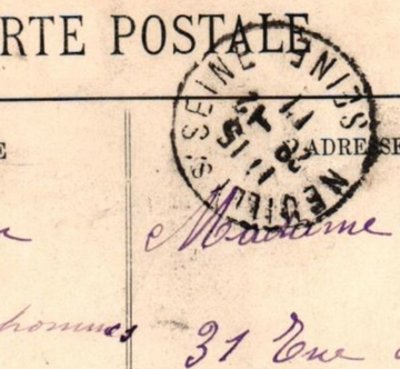 RTE POSTALE
NEUILLY S/ SEINE SEINE
11 15
28 - 2
11
E
ADRESSE
Madame
hommes
31 Rue